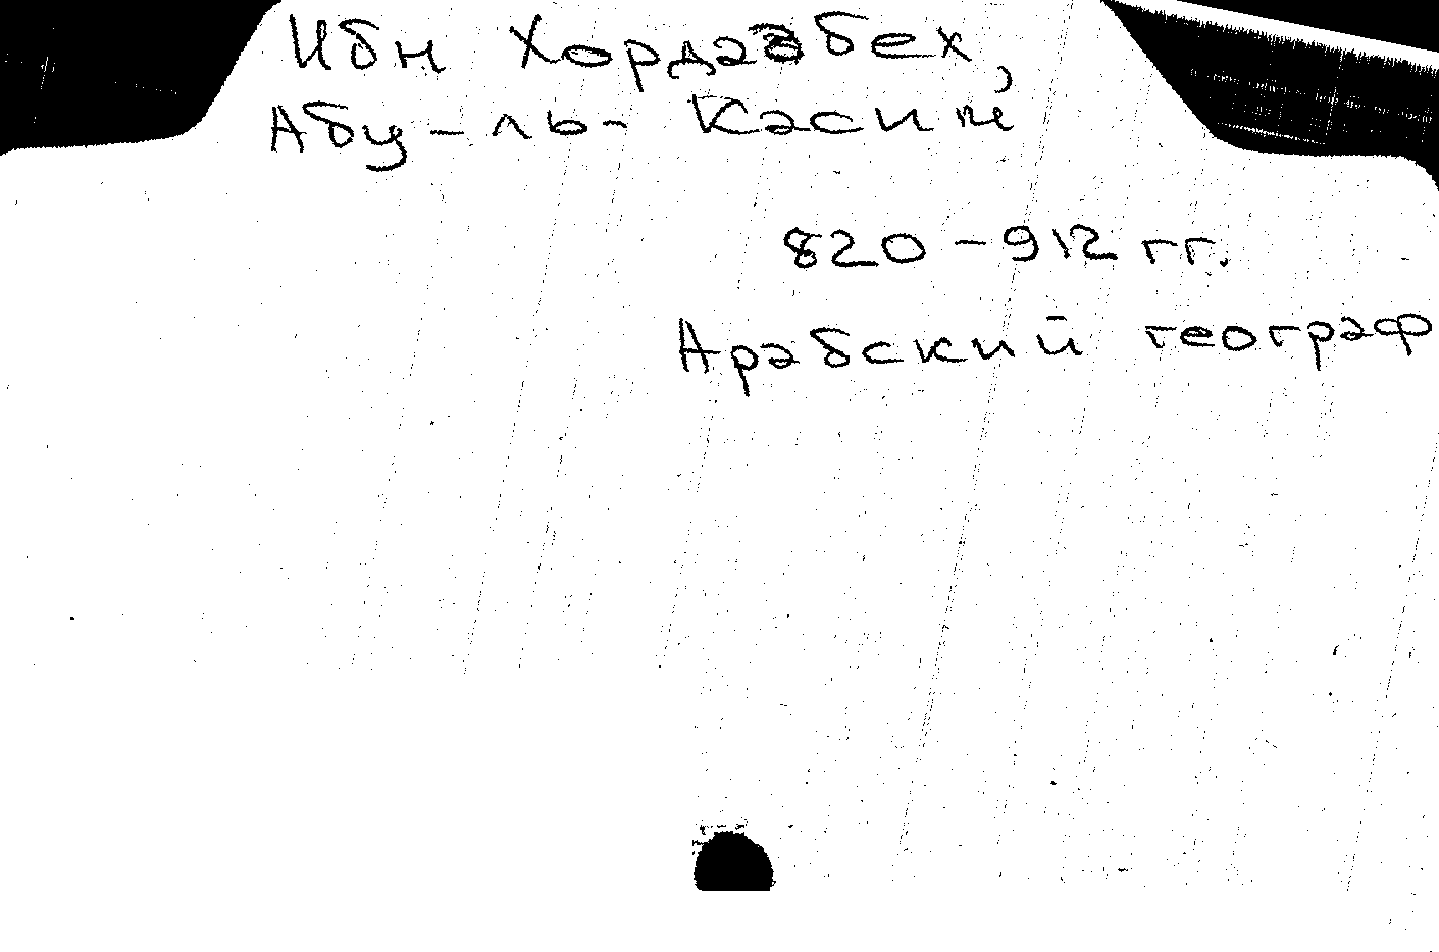 Ибн Хордадбех,
Абу-ль-Касим
820-912 гг.
Арабский географ